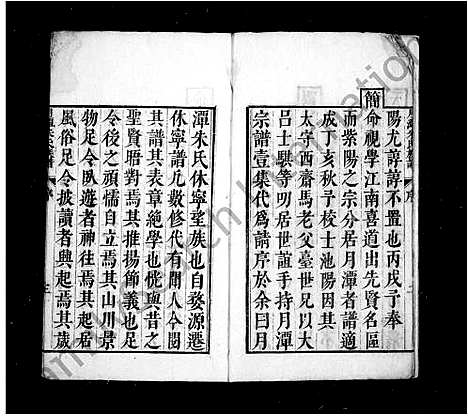 陽尤諄諄不置也丙戌予奉
簡命視學江南喜道出先賢名區
而紫陽之宗分居月潭者譜適
成丁亥秋予校士池陽因其
太守西齋馬老父臺世兄以大
呂士騏等明居世誼手持月潭
宗譜壹集代為請序於余曰月
潭朱氏休寧望族也自婺源遷
休寧譜凡數修代有聞人今閱
譜其表章絕學也恍與昔之
聖賢晤對焉其推揚節義也足
令後之頑懦自立焉其山川景
物足令臥遊者神往焉其起居
風俗足令披讀者興起焉其歲
序